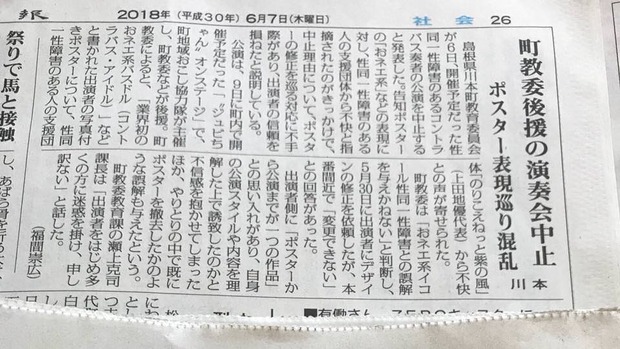 報
2018年(平成30年)6月7日(木曜日)
社会
26
町教委後援の演奏会中止
ポスター表現巡り混乱
川本
島根県川本町教育委員会
が6日、開催予定だった性
同一性障害のあるコントラ
バス奏者の公演を中止する
と発表した。告知ポスター
の「おネエ系」などの表現に
対し、性同一性障害のある
人の支援団体から不快と指
摘されたのがきっかけで、
中止理由について、ポスタ
ーの修正を巡る対応に不手
際があり、出演者の信頼を
損ねたと説明している。
公演は、9日に町内で開
催予定だった「ジュピちゃ
ん オンステージ」で、
町地域おこし協力隊が主催
し、町教委などが後援。町
教委によると、「業界初の
おネエ系バスドル(コント
ラバス・アイドル)」など
と書かれた出演者の写真付
きポスターについて、性同
一性障害のある人の支援団
体「のりこえねっと紫の風」
(上田地優代表)から不快
との声が寄せられた。
町教委は「おネエ系イコ
ール性同一性障害との誤解
を与えかねない」と判断し、
5月30日に出演者にデザイ
ンの修正を依頼したが、本
番間近で「変更できない」
との回答があった。
出演者側に「ポスターか
ら公演までが一つの作品」
との思い入れがあり、自身
の公演スタイルや内容を理
解した上で誘致したのかと
不信感を抱かせてしまった
ほか、やりとりの中で既に
ポスターを撤去したかのよ
うな誤解も与えたという。
町教委教育課の瀬上克司
課長は「出演者をはじめ多
くの方に迷惑を掛け、申し
訳ない」と話した。
(福間崇広)
祭りで馬と接触